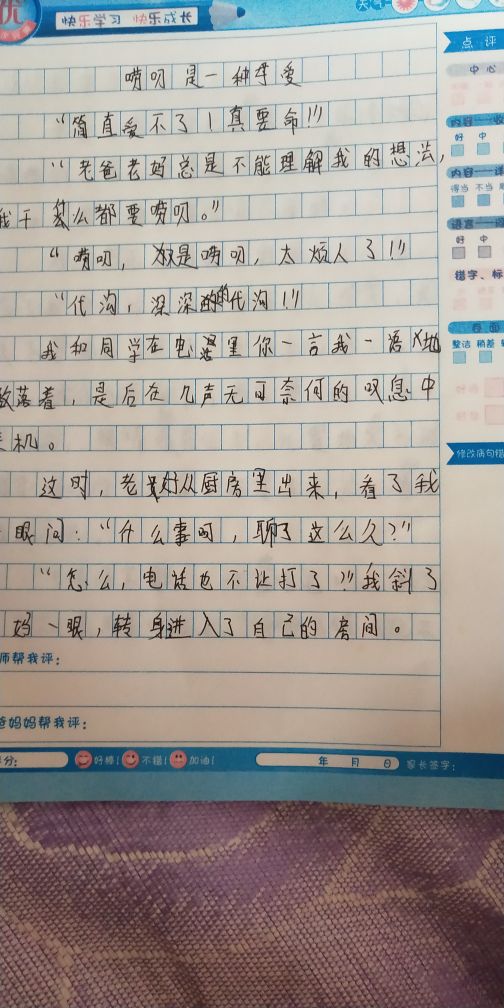 优
快乐学习 快乐成长
天气
唠叨是一种母爱
“简直受不了！真要命！”
“老爸老妈总是不能理解我的想法，
我干什么都要唠叨。”
“唠叨，又是唠叨，太烦人了！”
“代沟，深深的代沟！”
我和同学在电话里你一言我一语地
数落着，最后在几声无可奈何的叹息中
关机。
这时，老妈从厨房里出来，看了我
一眼问：“什么事啊，聊了这么久？”
“怎么，电话也不让打了！”我斜了
妈一眼，转身进入了自己的房间。
师帮我评：
爸妈妈帮我评：
得分： 好棒！ 不错！ 加油！ 年 月 日 家长签字：
点 评
中心
内容
好 中
内容
得当 不当
语言
好 中
错字、标
卷面
整洁 稍差
修改病句错